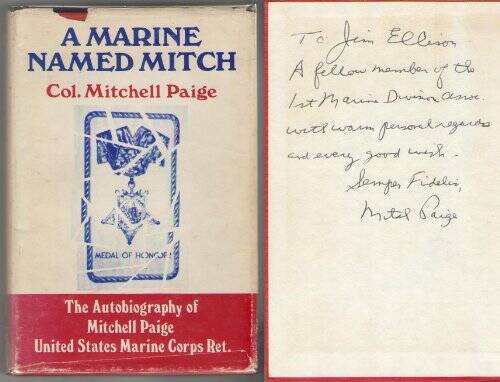 A MARINE
NAMED MITCH
Col. Mitchell Paige
MEDAL OF HONOR
The Autobiography of
Mitchell Paige
United States Marine Corps Ret.
To Jim Ellison
A fellow member of the
1st Marine Division Assoc.
with warm personal regards
and every good wish.
Semper Fidelis,
Mitch Paige